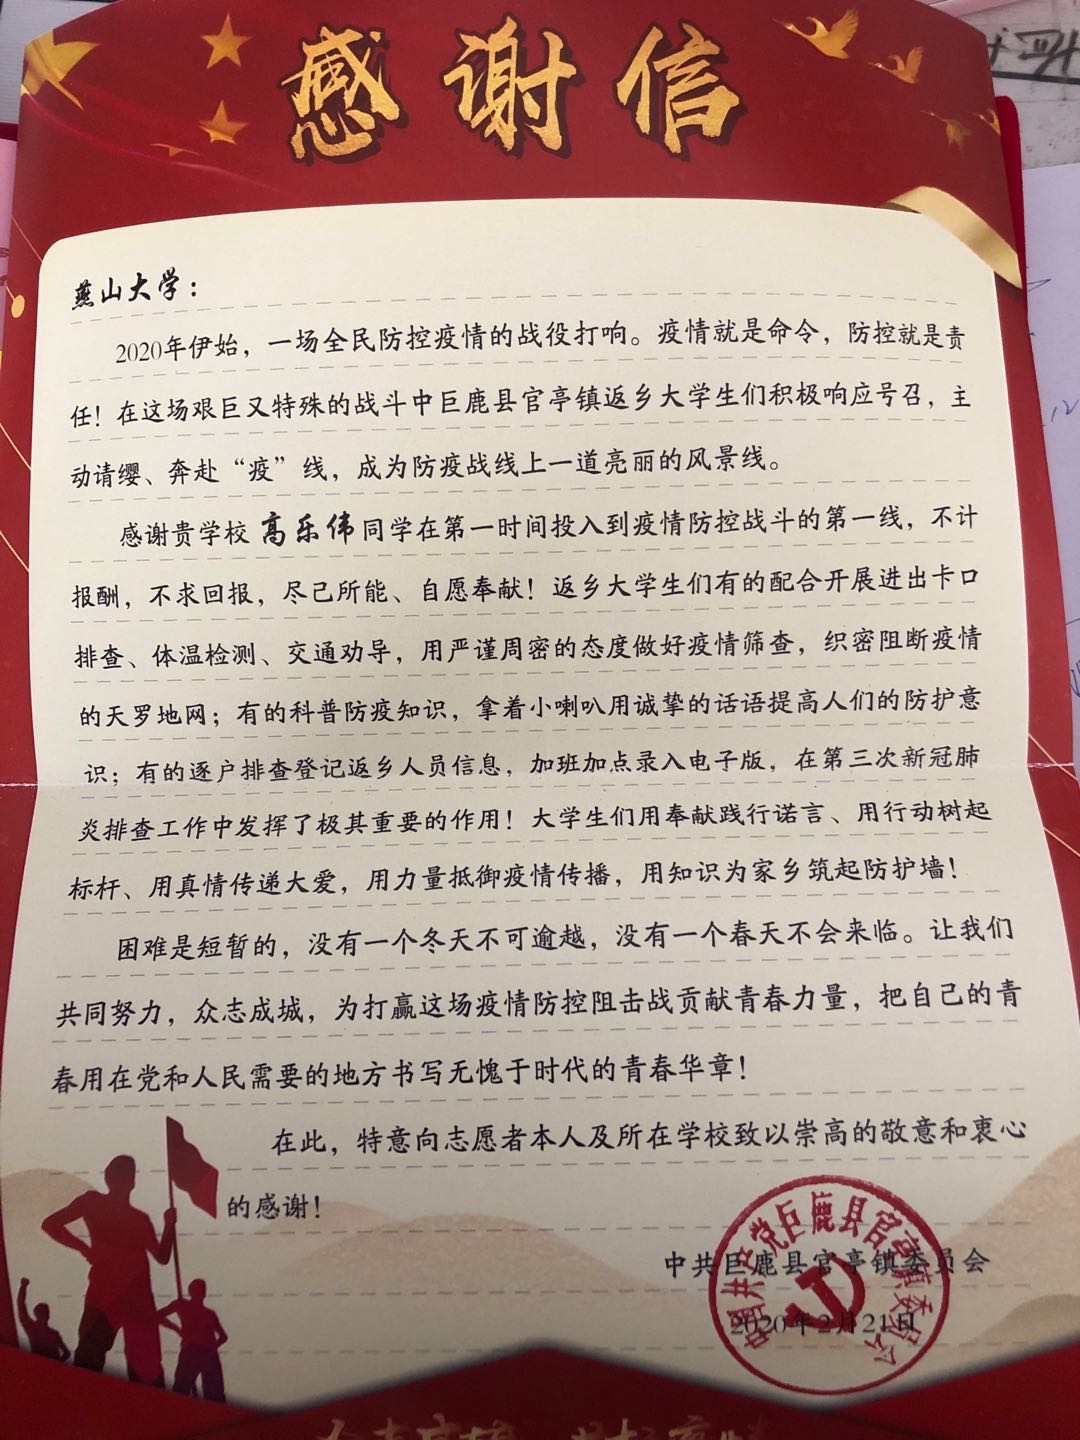 感谢信
燕山大学：
2020年伊始，一场全民防控疫情的战役打响。疫情就是命令，防控就是责
任！在这场艰巨又特殊的战斗中巨鹿县官亭镇返乡大学生们积极响应号召，主
动请缨、奔赴“疫”线，成为防疫战线上一道亮丽的风景线。
感谢贵学校高乐伟同学在第一时间投入到疫情防控战斗的第一线，不计
报酬，不求回报，尽己所能、自愿奉献！返乡大学生们有的配合开展进出卡口
排查、体温检测、交通劝导，用严谨周密的态度做好疫情筛查，织密阻断疫情
的天罗地网；有的科普防疫知识，拿着小喇叭用诚挚的话语提高人们的防护意
识；有的逐户排查登记返乡人员信息，加班加点录入电子版，在第三次新冠肺
炎排查工作中发挥了极其重要的作用！大学生们用奉献践行诺言、用行动树起
标杆、用真情传递大爱，用力量抵御疫情传播，用知识为家乡筑起防护墙！
困难是短暂的，没有一个冬天不可逾越，没有一个春天不会来临。让我们
共同努力，众志成城，为打赢这场疫情防控阻击战贡献青春力量，把自己的青
春用在党和人民需要的地方书写无愧于时代的青春华章！
在此，特意向志愿者本人及所在学校致以崇高的敬意和衷心
的感谢！
中共巨鹿县官亭镇委员会
2020年2月21日
中国共产党巨鹿县官亭镇委员会